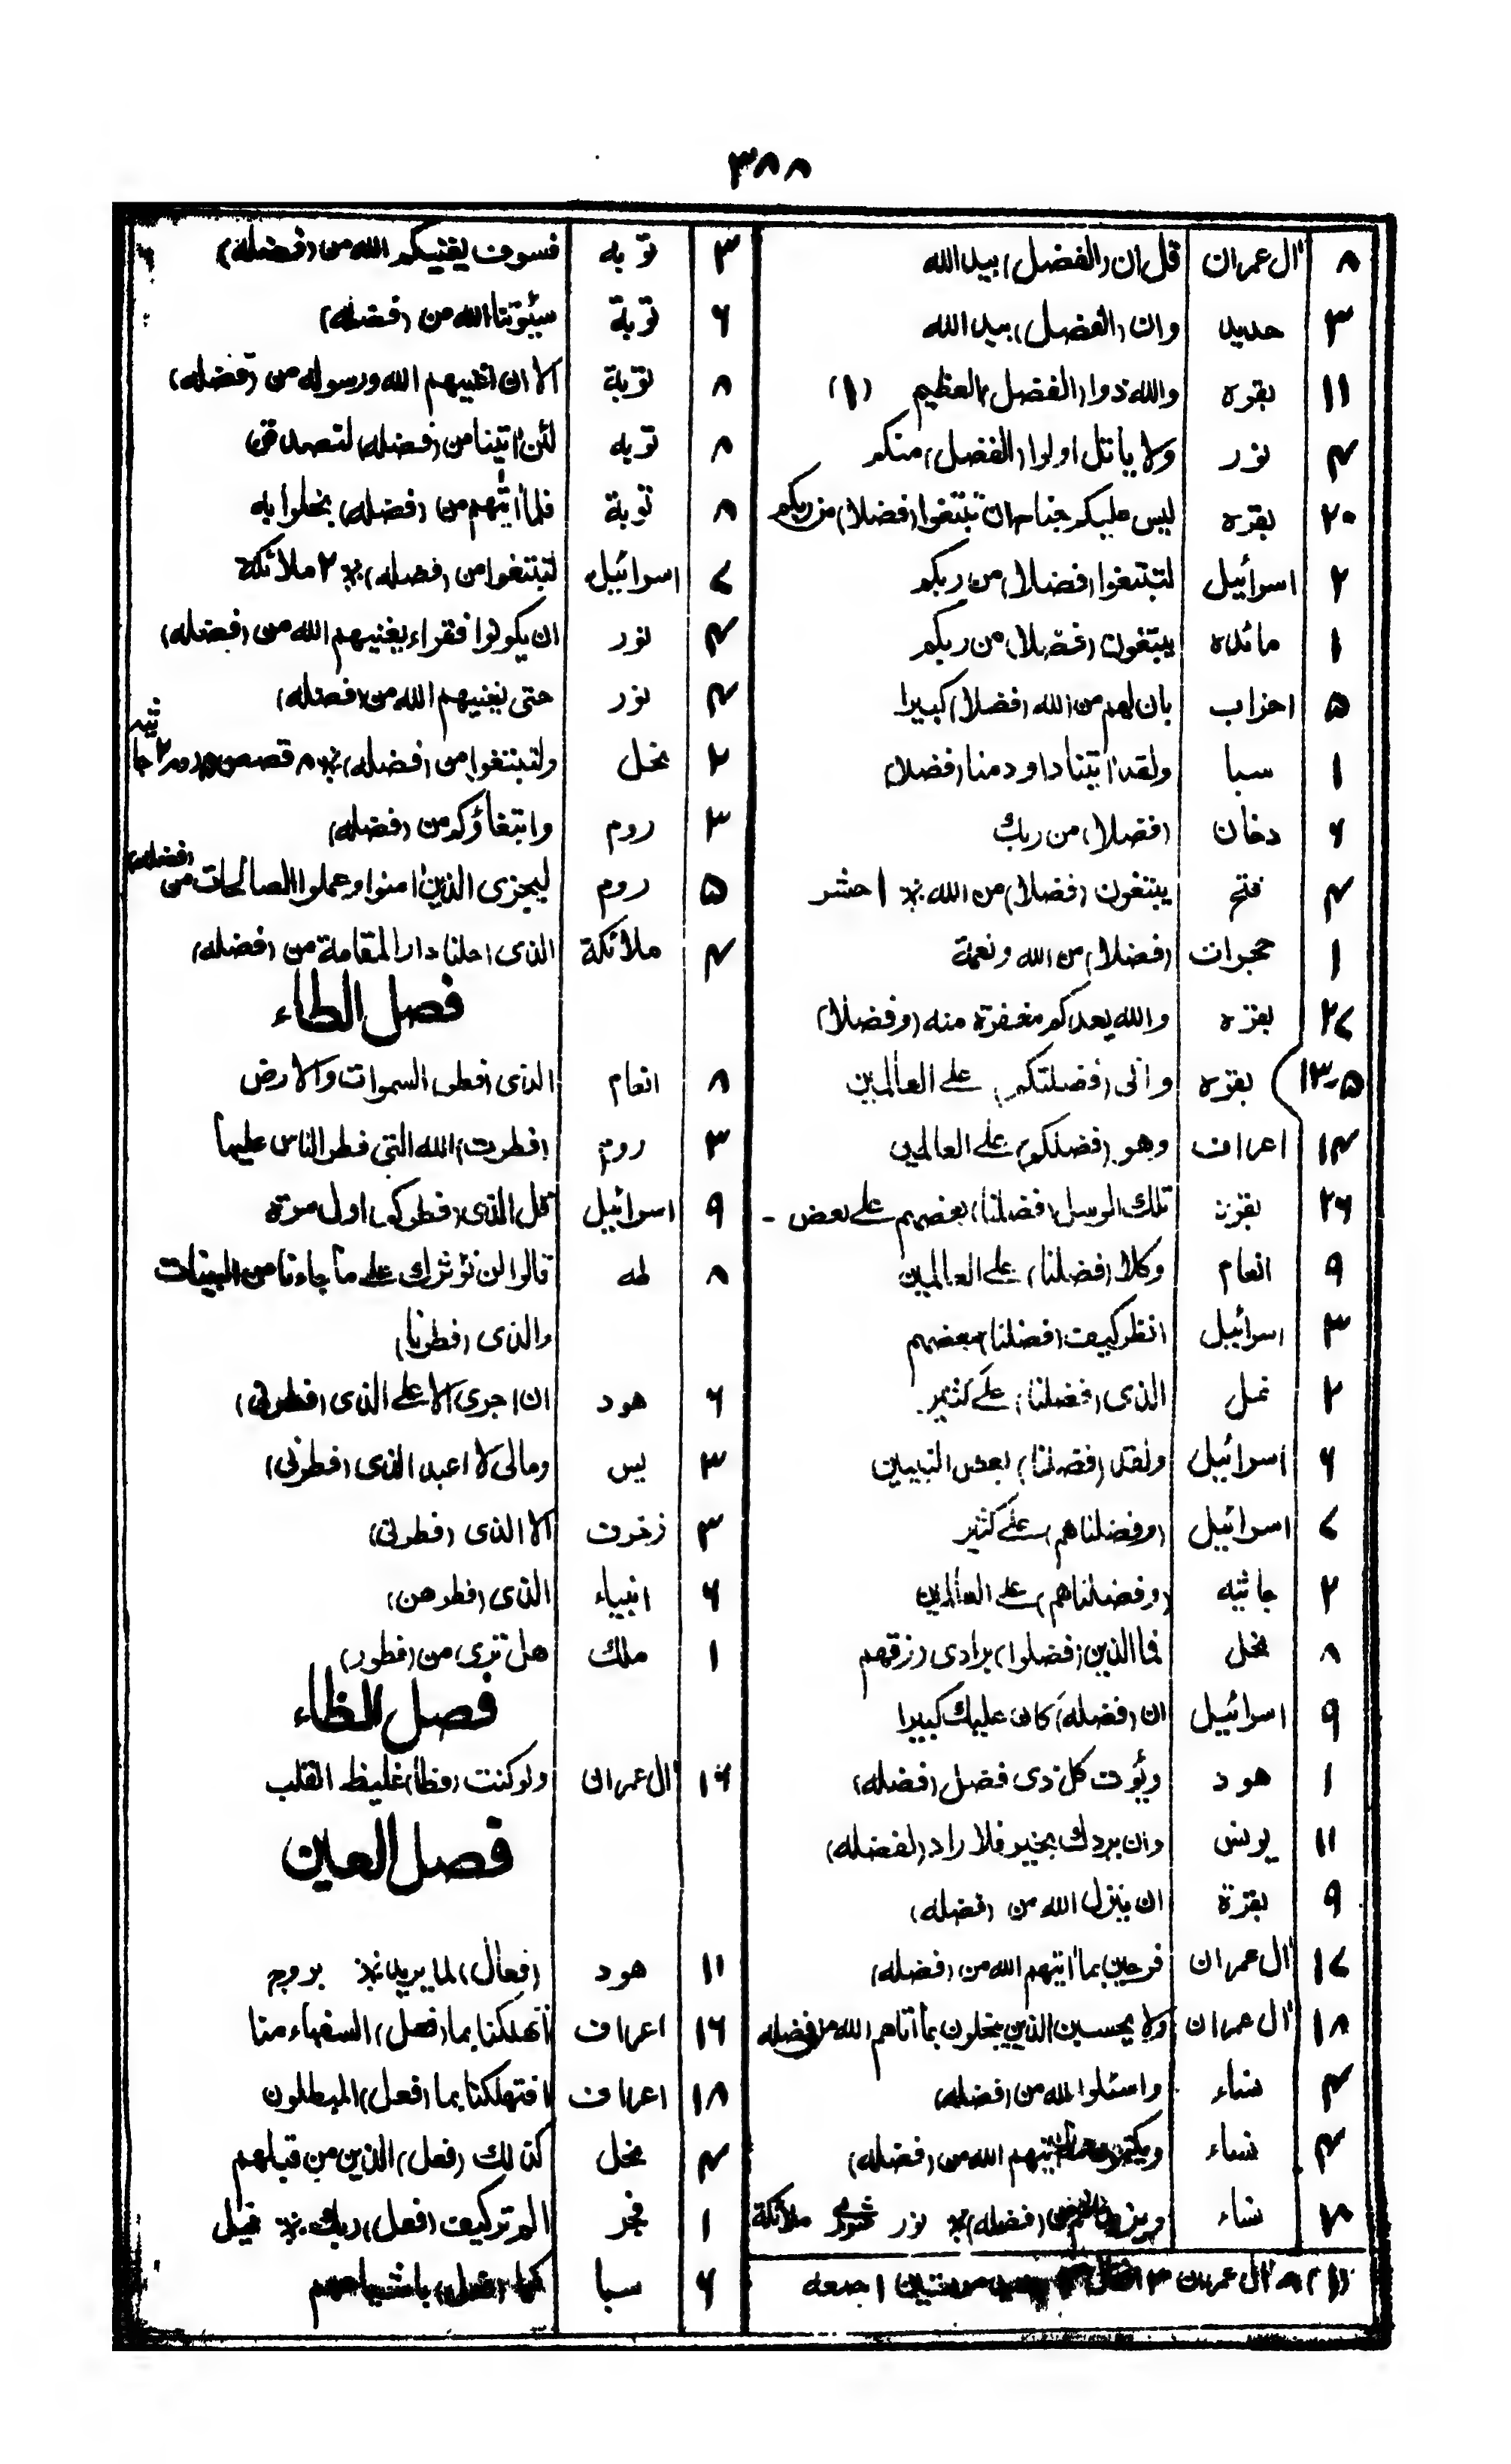 ۳۸۸
۸ اٰل عمران قل ان (الفضل) بيد الله
۳ حديد وان (الفضل) بيد الله
۱۱ بقره والله ذوا (الفضل) العظيم (۱)
۴ نور ولا ياتل اولوا (الفضل) منكم
۲۰ بقره ليس عليكم جناح ان تبتغوا (فضلا) من ربكم
۲ اسرائيل لتبتغوا (فضلا) من ربكم
۱ مائده يبتغون (فضلا) من ربكم
۵ احزاب بان لهم من الله (فضلا) كبيرا
۱ سبا ولقد اٰتينا داود منا (فضلا)
۶ دخان (فضلا) من ربك
۴ فتح يبتغون (فضلا) من الله ÷ ۱ حشر
۱ حجرات (فضلا) من الله ونعمة
۲۷ بقره والله يعدكم مغفرة منه (وفضلا)
۵-۱۳ بقره واني (فضلتكم) على العالمين
۱۴ اعراف وهو (فضلكم) على العالمين
۲۶ بقره تلك الرسل (فضلنا) بعضهم على بعض -
۹ انعام وكلا (فضلنا) على العالمين
۳ اسرائيل انظر كيف (فضلنا) بعضهم
۲ نمل الذى (فضلنا) على كثير
۶ اسرائيل ولقد (فضلنا) بعض النبيين
۷ اسرائيل (وفضلناهم) على كثير
۲ جاثيه (وفضلناهم) على العالمين
۸ نحل فما الذين (فضلوا) برادى رزقهم
۹ اسرائيل ان (فضله) كان عليك كبيرا
۱ هود ويؤت كل ذى فضل (فضله)
۱۱ يونس وان يردك بخير فلا راد (لفضله)
۹ بقرة ان ينزل الله من (فضله)
۱۷ اٰل عمران فرحين بما اٰتيهم الله من (فضله)
۱۸ اٰل عمران ولا يحسبن الذين يبخلون بما اٰتاهم الله من فضله
۴ نساء واسئلوا الله من (فضله)
۴ نساء اٰتيهم الله من (فضله)
نساء (فضله) ÷ نور شورى ملائكة
(۱) ۸ اٰل عمران ۳ جمعه
۳ توبه فسوف يغنيكم الله من (فضله)
۶ توبة سيؤتنا الله من (فضله)
۸ توبة الا ان اغنيهم الله ورسوله من (فضله)
۸ توبه لئن اٰتينا من (فضله) لتصدقن
۸ توبة فلما اٰتيهم من (فضله) بخلوا به
۷ اسرائيل لتبتغوا من (فضله) ÷ ۲ ملائكة
۴ نور ان يكونوا فقراء يغنيهم الله من (فضله)
۴ نور حتى يغنيهم الله من (فضله)
۲ نحل ولتبتغوا من (فضله) ÷ ۸ قصص ۵ روم ۲ جاثيه
۳ روم وابتغاؤكم من (فضله)
۵ روم ليجزى الذين اٰمنوا وعملوا الصالحات من (فضله)
۴ ملائكة الذى احلنا دار المقامة من (فضله)
فصل الطاء
۸ انعام الذى (فطر) السموات والارض
۳ روم (فطرت) الله التى فطر الناس عليها
۹ اسرائيل قل الذى (فطركم) اول مرة
۸ طه قالوا لن نؤثرك على ما جاءنا من البينات
والذى (فطرنا)
۶ هود ان اجرى الا على الذى (فطرنى)
۳ يس ومالى لا اعبد الذى (فطرنى)
۳ زخرف الا الذى (فطرنى)
۶ انبياء الذى (فطرهن)
۱ ملك هل ترى من (فطور)
فصل الظاء
۱۶ اٰل عمران ولو كنت (فظا) غليظ القلب
فصل العين
۱۱ هود (فعال) لما يريد ÷ بروج
۱۶ اعراف اتهلكنا بما (فعل) السفهاء منا
۱۸ اعراف افتهلكنا بما (فعل) المبطلون
۴ نحل كذلك (فعل) الذين من قبلهم
۱ فجر الم تر كيف (فعل) ربك ÷ فيل
۶ سبا كما (فعل) باشياعهم